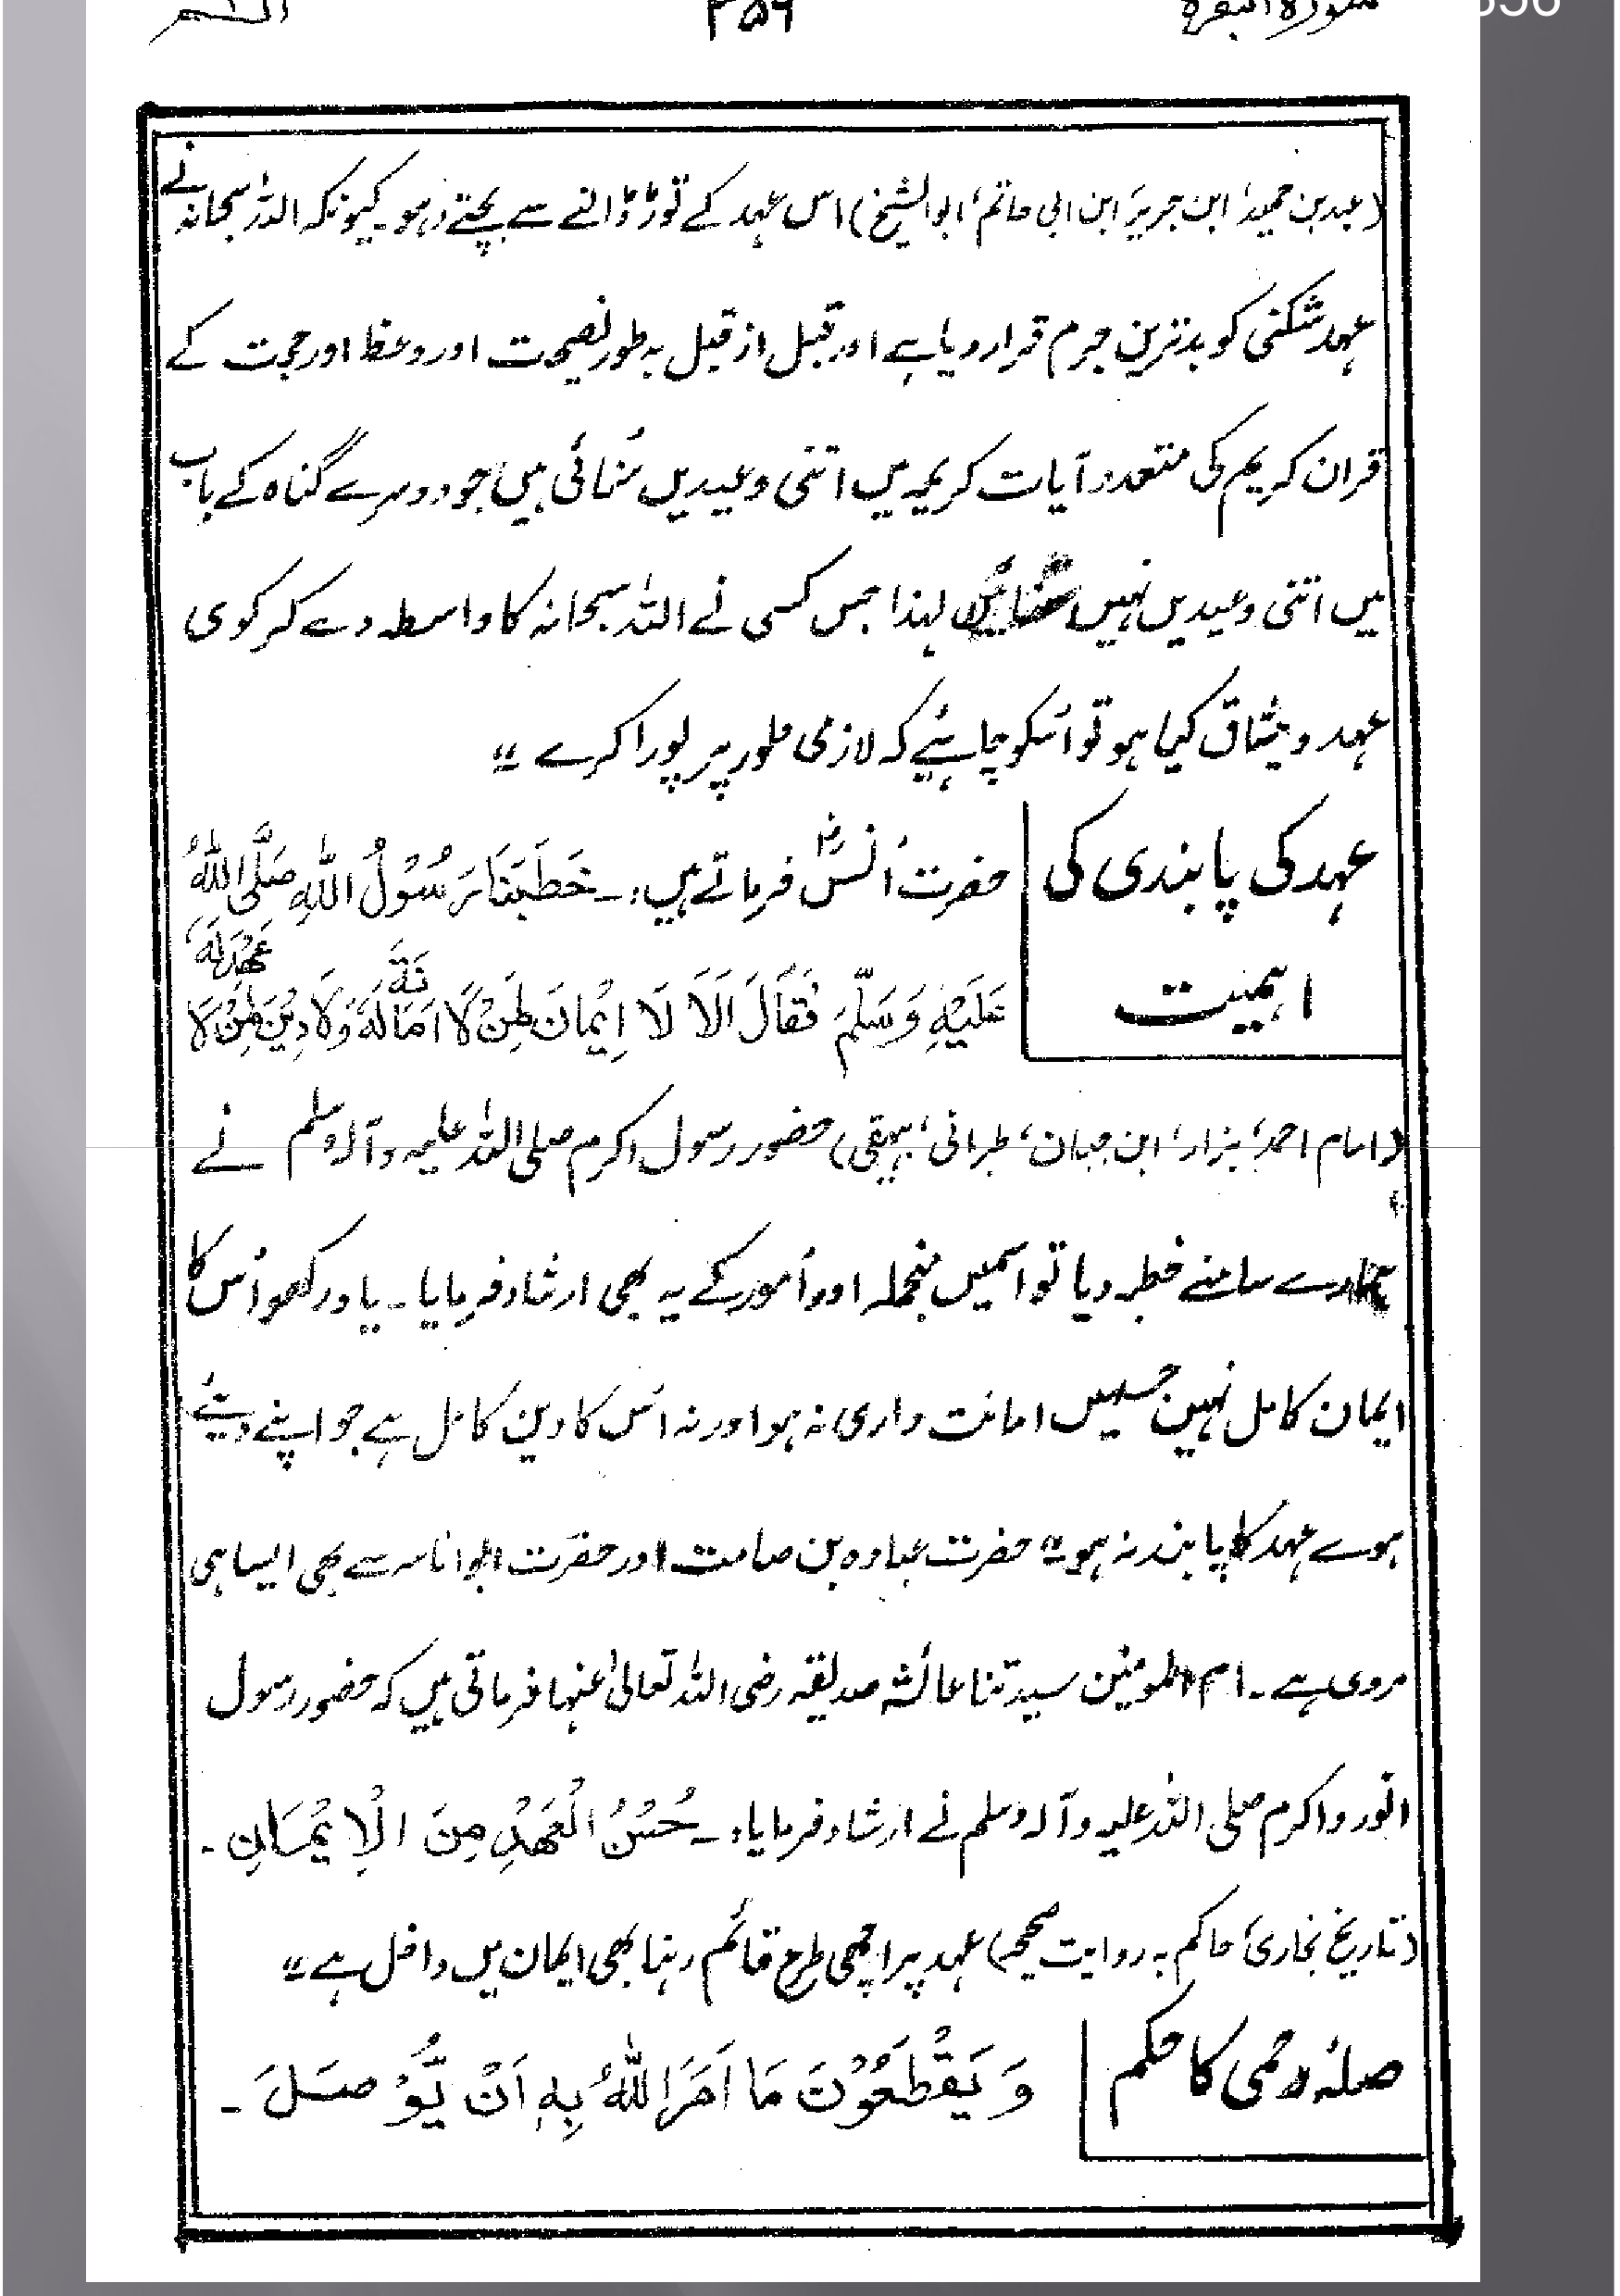 سورة البقرة ۳۵۶ الٓـمّٓ
356
(عبد بن حمید، ابن جریر، ابن ابی حاتم، ابوالشیخ) اس عہد کے توڑ ڈالنے سے بچتے رہو۔ کیونکہ اللہ سبحانہ نے
عہد شکنی کو بدترین جرم قرار دیا ہے اور قبل از قبل بہ طور نصیحت اور وعظ اور حجت کے
قران کریم کی متعدد آیات کریمہ میں اتنی وعیدیں سُنائی ہیں جو دوسرے گناہ کے باب
میں اتنی وعیدیں نہیں سُنائیں لہذا جس کسی نے اللہ سبحانہ کا واسطہ دے کر کوی
عہد و میثاق کیا ہو تو اُسکو چاہئیے کہ لازمی طور پر پورا کرے "
عہد کی پابندی کی
اہمیت
حضرت اُنسؓ فرماتے ہیں:۔ خَطَبَنَا رَسُوْلُ اللّٰہِ صَلَّی اللّٰہُ
عَلَیْہِ وَسَلَّمَ فَقَالَ اَلَا لَا اِیْمَانَ لِمَنْ لَّا اَمَانَةَ لَهٗ وَلَا دِیْنَ لِمَنْ لَا عَهْدَ لَهٗ
(امام احمد، بزار، ابن حبان، طبرانی، بیہقی) حضور رسول اکرم صلی اللہ علیہ و آلہ وسلم نے
ہمارے سامنے خطبہ دیا تو اسمیں منجملہ اور اُمور کے یہ بھی ارشاد فرمایا۔ یاد رکھو اُس کا
ایمان کامل نہیں جسمیں امانت داری نہ ہو اور نہ اُس کا دین کامل ہے جو اپنے دیئے
ہوے عہد کا پابند نہ ہو" حضرت عبادہ بن صامت اور حضرت ابو امامہ سے بھی ایسا ہی
مروی ہے۔ ام المومنین سیدتنا عائشہ صدیقہ رضی اللہ تعالیٰ عنہا فرماتی ہیں کہ حضور رسول
انور و اکرم صلی اللہ علیہ و آلہ وسلم نے ارشاد فرمایا:۔ حُسْنُ الْعَهْدِ مِنَ الْاِیْمَانِ۔
(تاریخ بخاری، حاکم بہ روایت صحیح) عہد پر اچھی طرح قائم رہنا بھی ایمان میں داخل ہے"
صلۂ رحمی کا حکم
وَیَقْطَعُوْنَ مَا اَمَرَ اللّٰہُ بِہٖ اَنْ یُّوْصَلَ۔